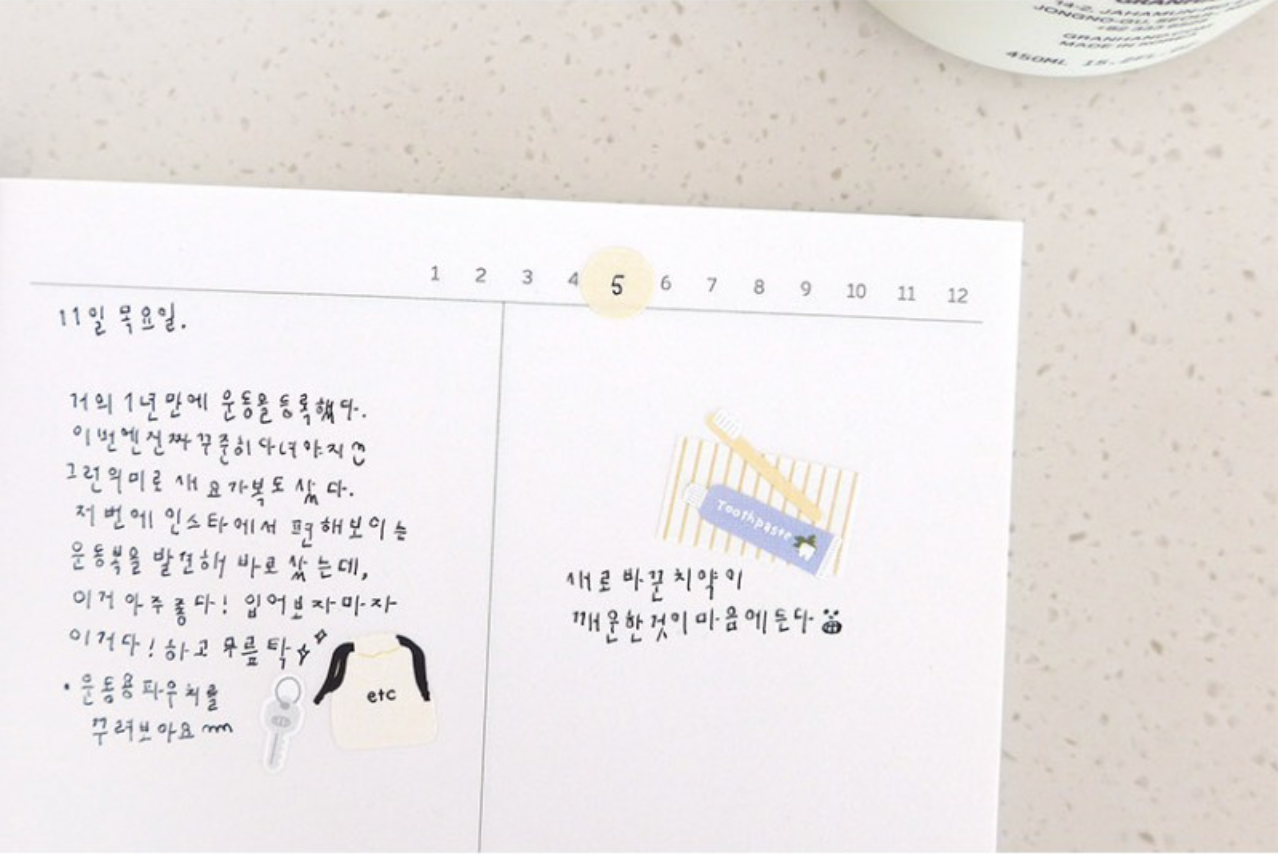 GRANHAND
14-2, JAHAMUN-RO
JONGNO-GU, SEOUL
+82 333
GRANHAND.COM
MADE IN KOREA
450ML 15.
1 2 3 4 5 6 7 8 9 10 11 12
11일 목요일.
거의 1년만에 운동을 등록했다.
이번엔 진짜 꾸준히 다녀야지
그런의미로 새 요가복도 샀다.
저번에 인스타에서 편해보이는
운동복을 발견해 바로 샀는데,
이거 아주좋다! 입어보자마자
이거다! 하고 무릎탁
• 운동용파우치를
꾸려보아요
etc
Toothpaste
새로바꾼치약이
깨운한것이마음에든다